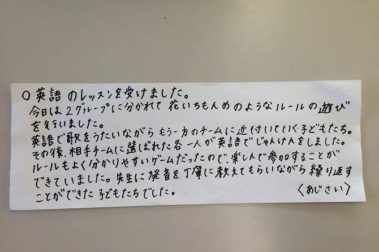 ○英語のレッスンを受けました。
今日は2グループに分かれて花いちもんめのようなルールの遊び
を行いました。
英語で歌をうたいながらもう一方のチームに近付いていく子どもたち。
その後、相手チームに選ばれた各一人が英語でじゃんけんをしました。
ルールもよく分かりやすいゲームだったので、楽しんで参加することが
できていました。先生に発音を丁寧に教えてもらいながら繰り返す
ことができた子どもたちでした。
〈あじさい〉